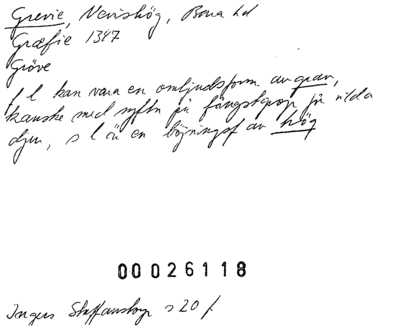 Grevie, Nevishög, Bara hd
Græfie 1347
Gröve
f l kan vara en omljudsform av grav,
kanske med syftn på fångstgrop för vilda
djur, s l är en böjningsf av hög
00026118
Ingers Staffanstorp s 20 f.